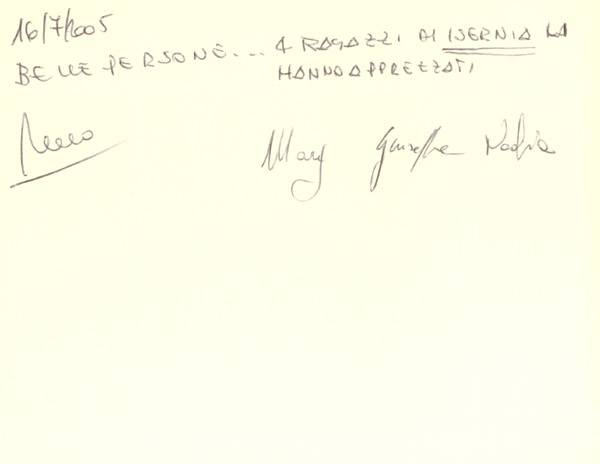 16/7/2005
BELLE PERSONE... 4 RAGAZZI DI ISERNIA LA
HANNO APPREZZATI
Mary Giuseppe Nadia